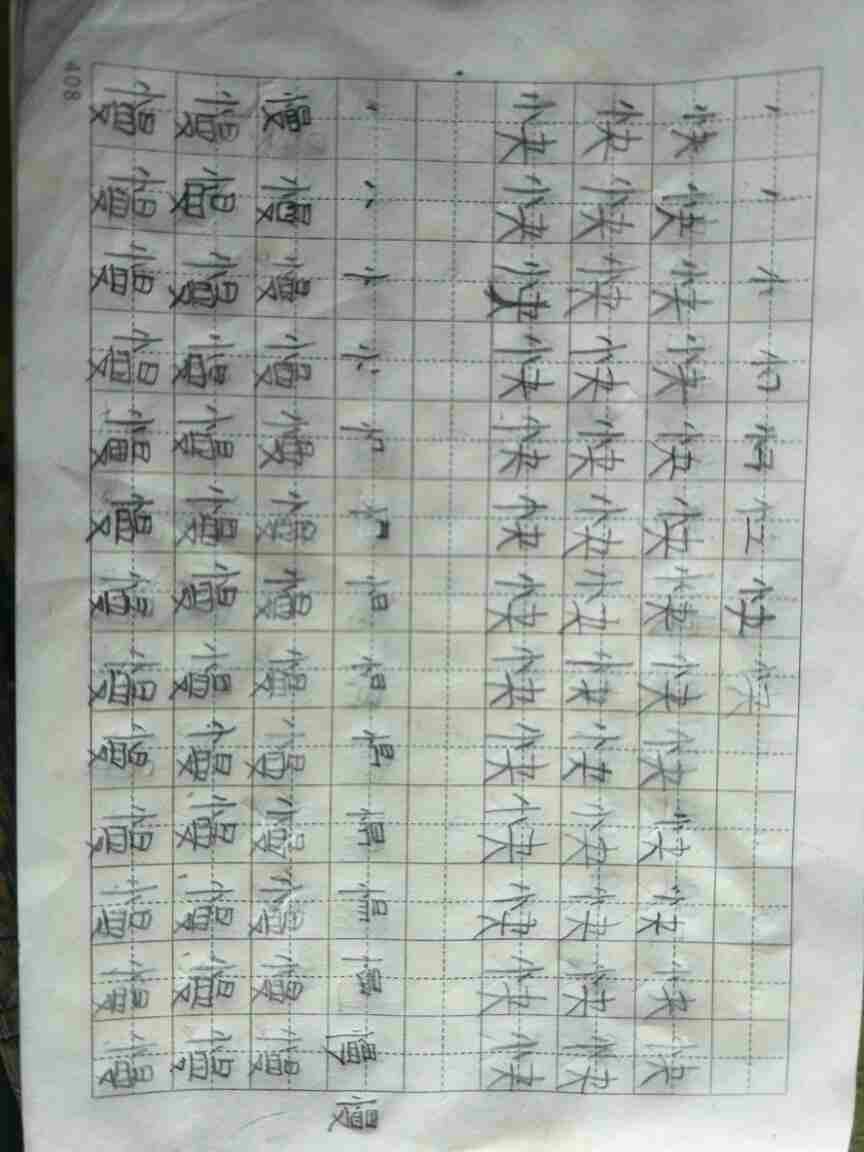 忄 快 快
快快快快快快快快快快快快快
快快快快快快快快快快快快快
快快快快快快快快快快快快快
忄 慢 慢
慢慢慢慢慢慢慢慢慢慢慢慢慢
慢慢慢慢慢慢慢慢慢慢慢慢慢
慢慢慢慢慢慢慢慢慢慢慢慢慢
408